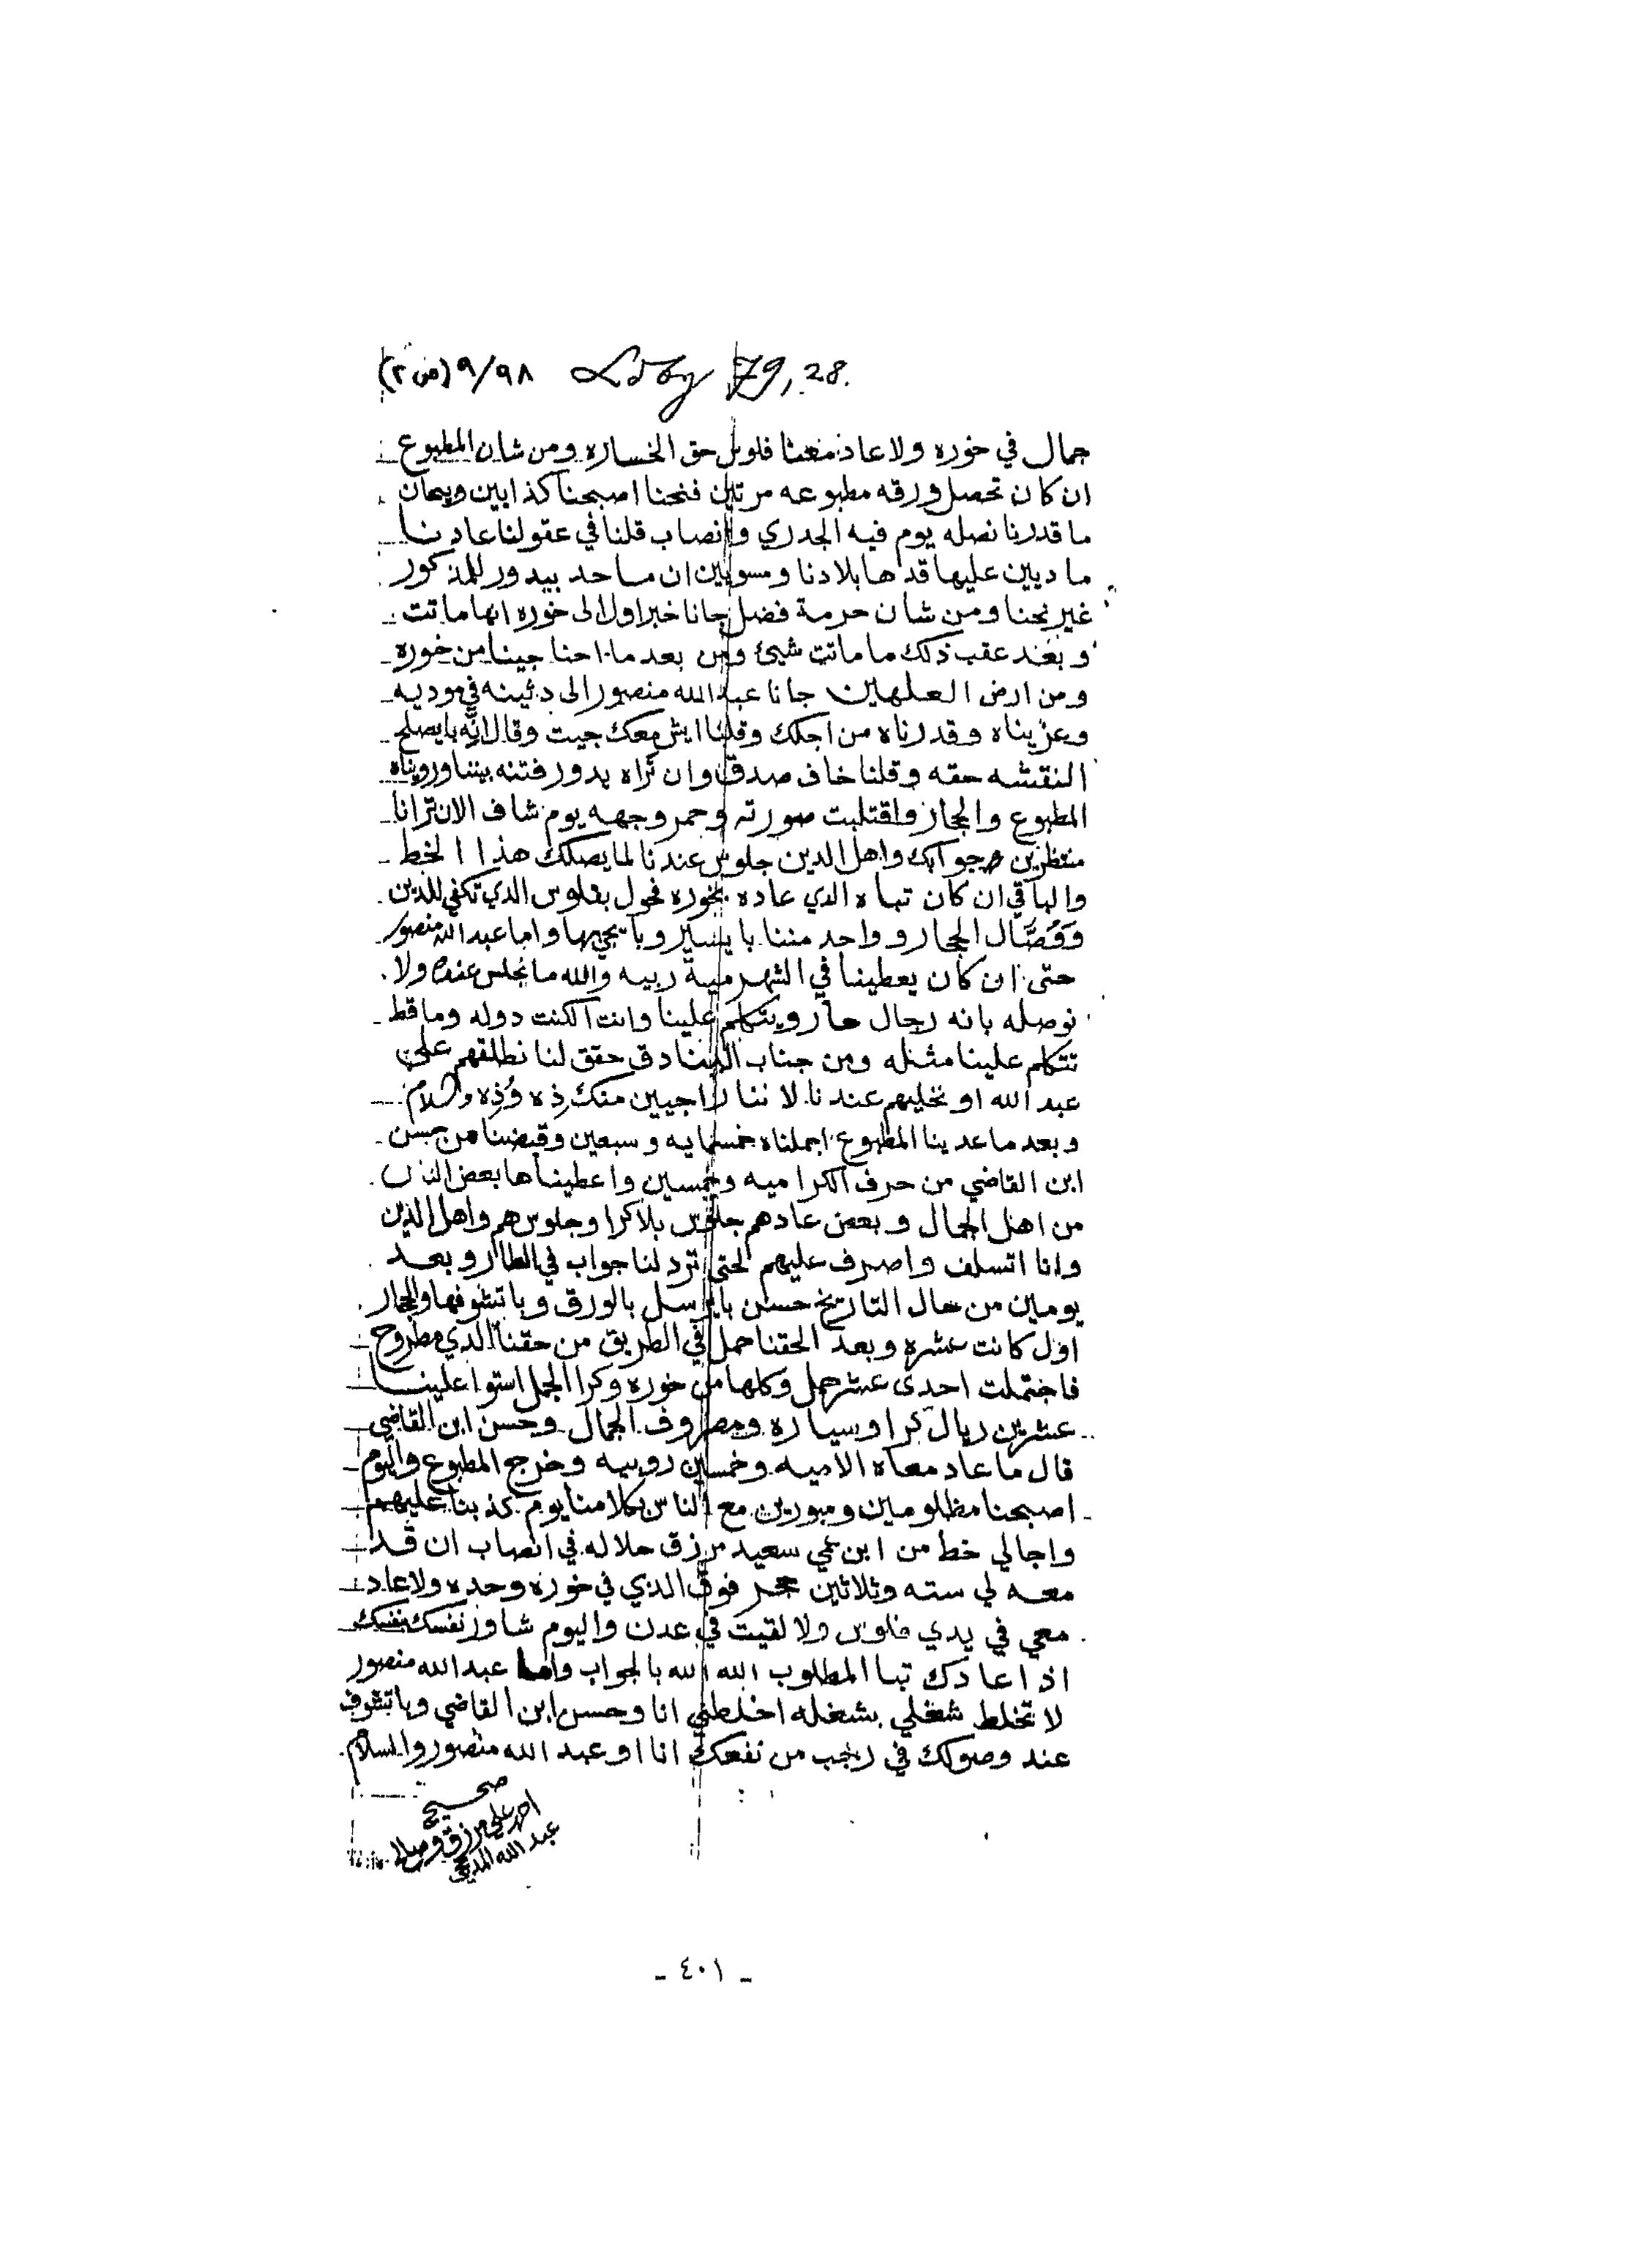 ٩/٩٨ (ص ٢) Ldbg 79, 28.
جمال في خوره ولا عاد معنا فلوس حق الخساره ومن شان المطبوع
ان كان تحصل ورقه مطبوعه مرتين فنحنا اصبحنا كذابين ويمان
ما قدرنا نصله يوم فيه الجدري وانصاب قلنا في عقولنا عادنا
ما ديين عليها قدها بلادنا ومسوبين ان ما حد بيدور للمذكور
غير نحنا ومن شان حرمة فضل جانا خبر اول الى خوره انها ماتت
وبعد عقب ذلك ما ماتت شيئ ومن بعد ما احنا جينا من خوره
ومن ارض العلهين جانا عبد الله منصور الى دثينه في موديه
وعزيناه وقدرناه من اجلك وقلنا ايش معك جيت وقال انه با يصلح
النقشه حقه وقلنا خاف صدق وان تراه يدور فتنه بيننا ورويناه
المطبوع والجاز واقتلبت صورته وحمر وجهه يوم شاف الان ترانا
منتظرين جوابك واهل الدين جلوس عندنا لما يصلك هذا الخط
والباقي ان كان تباه الذي عاده بخوره فحول بفلوس الذي تكفي للدين
ووصال الحجار وواحد مننا با يسير وبا يجيبها واما عبد الله منصور
حتى ان كان يعطينا في الشهر مية ربيه والله ما نجلس عنده ولا
نوصله بانه رجال حار ويتكلم علينا وانت الكنت دوله وما قط
تتكلم علينا مثله ومن جناب البنادق حقق لنا نطلقهم على
عبد الله او نخليهم عندنا لاننا راجيين منك ذه وذه والسلام
وبعد ما عدينا المطبوع اجملناه خمسمايه وسبعين وقبضنا من حسن
ابن القاضي من حرف الكرا ميه وخمسين واعطيناها بعض الناس
من اهل الجمال وبعض عادهم جلوس بلا كرا وجلوس هم واهل الدين
وانا اتسلف واصرف عليهم لحتى ترد لنا جواب في الطار وبعد
يومين من حال التاريخ حسن با يرسل بالورق وبا تشوفها والحجار
اول كانت عشره وبعد الحقنا حمل في الطريق من حقنا الذي مطروح
فاجتملت احدى عشر حمل وكلها من خوره وكرا الجمل استوا علينا
عشرين ريال كرا وسياره ومصروف الجمال وحسن ابن القاضي
قال ما عاد معاه الا ميه وخمسين روبيه وخرج المطبوع واليوم
اصبحنا مظلومين ومبورين مع الناس بكلامنا يوم كذبنا عليهم
واجالي خط من ابن عمي سعيد مرزق حلاله في انصاب ان قد
معه لي سته وثلاثين حجر فوق الذي في خوره وحده ولا عاد
معي في يدي فلوس ولا لقيت في عدن واليوم شاور نفسك بنفسك
اذا عادك تبا المطلوب الله الله بالجواب واما عبد الله منصور
لا تخلط شغلي بشغله اخلطني انا وحسن ابن القاضي وبا تشوف
عند وصولك في رجب من نفعك انا او عبد الله منصور والسلام
صحيح
احمد علي مرزق وصالح
عبد الله
- ٤٠١ -